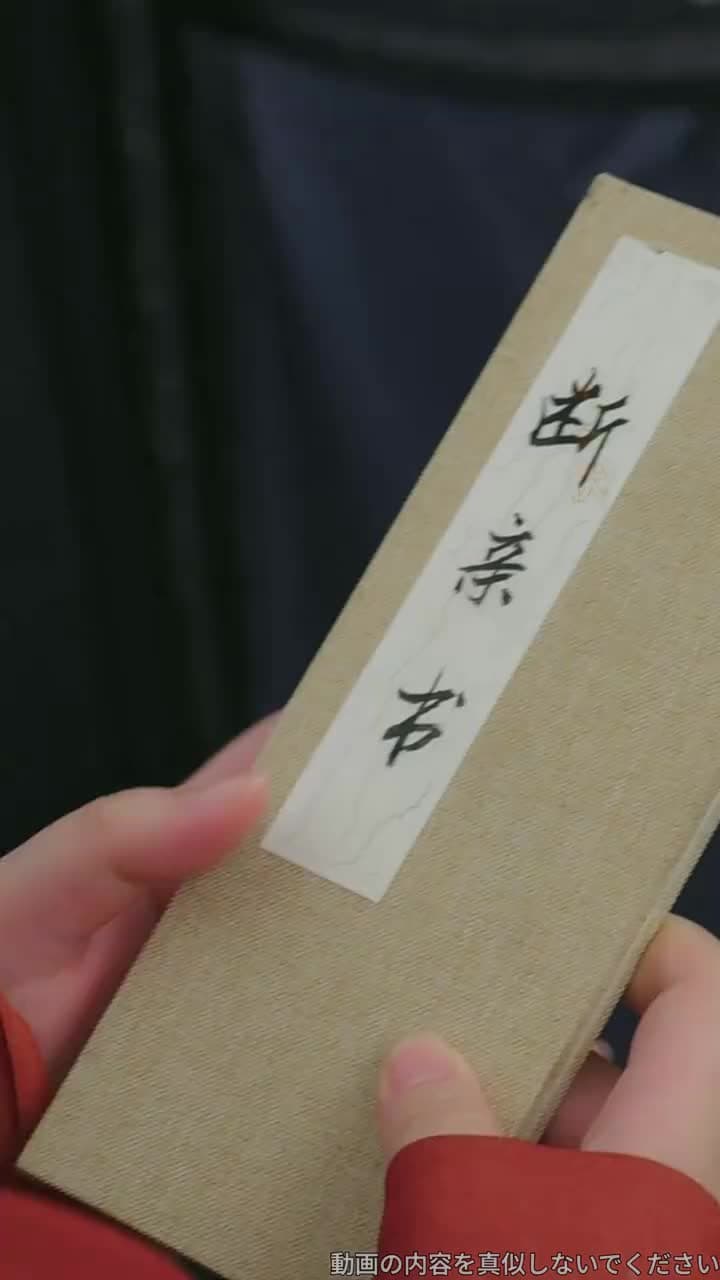 断亲书
動画の内容を真似しないでください